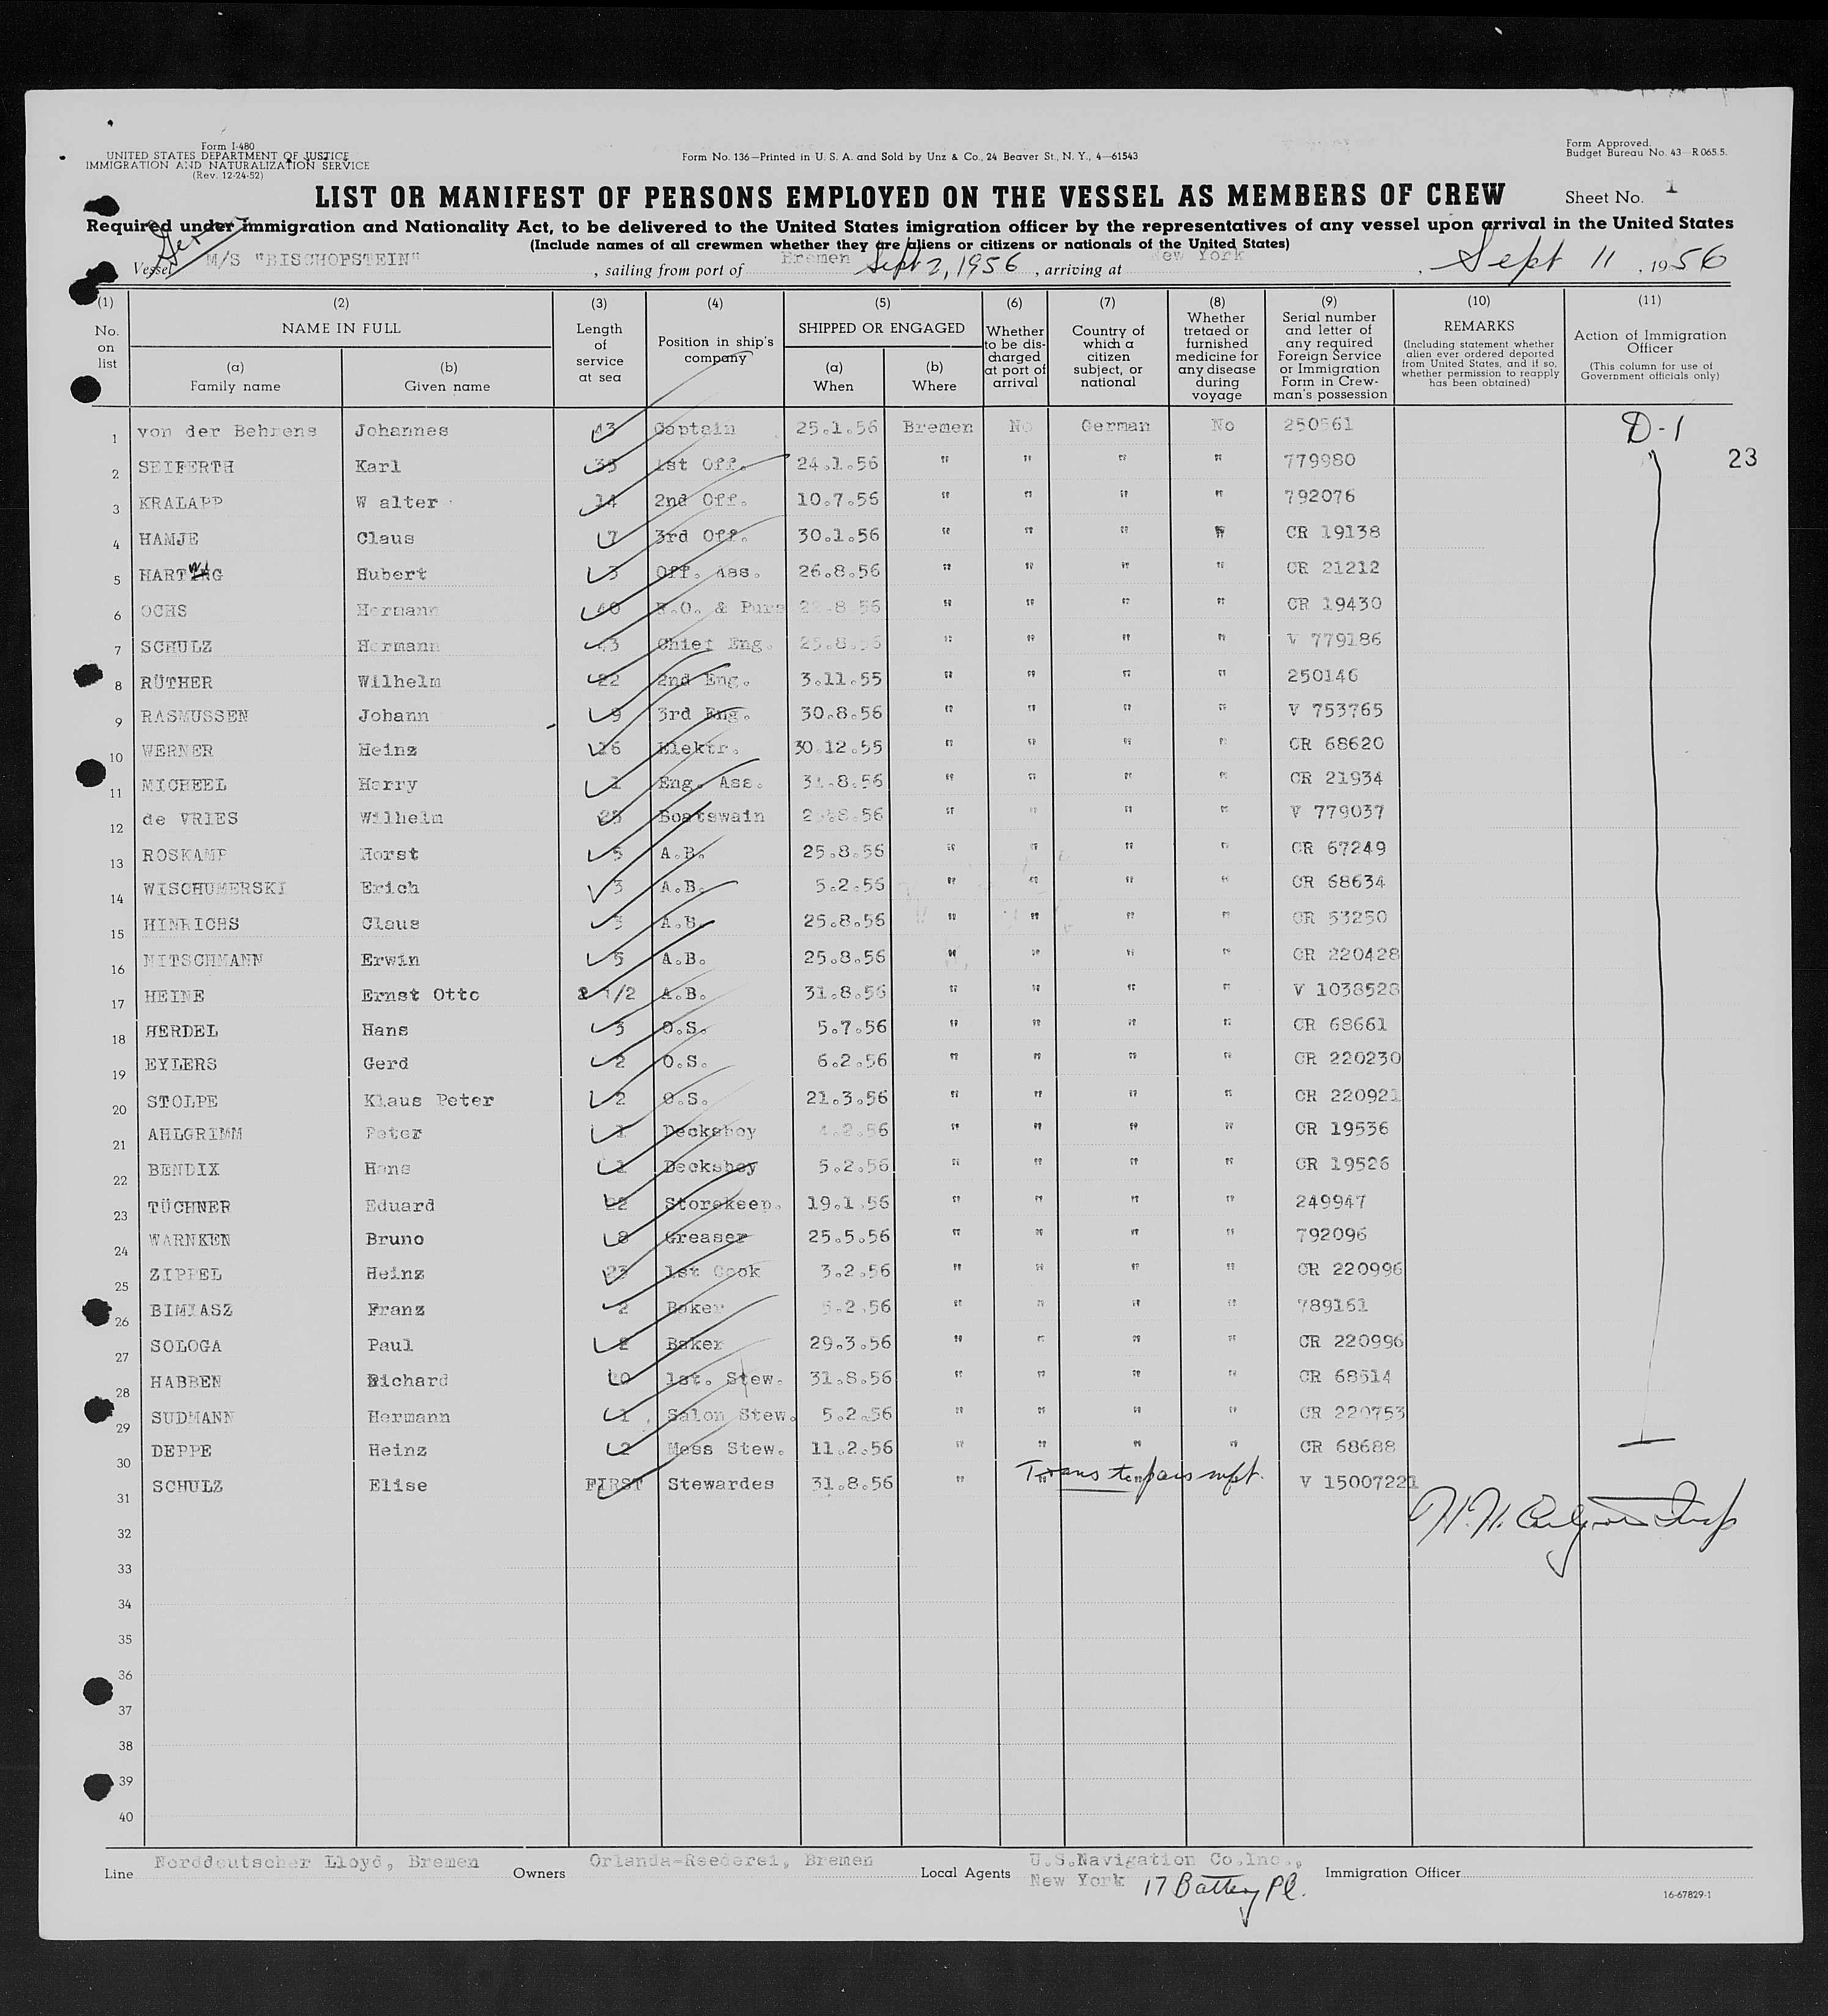 Form I-480
UNITED STATES DEPARTMENT OF JUSTICE
IMMIGRATION AND NATURALIZATION SERVICE
(Rev. 12-24-52)
Form No. 136—Printed in U. S. A. and Sold by Unz & Co., 24 Beaver St., N. Y., 4—61543
Form Approved.
Budget Bureau No. 43—R065.5.
LIST OR MANIFEST OF PERSONS EMPLOYED ON THE VESSEL AS MEMBERS OF CREW
Sheet No. 1
Required under Immigration and Nationality Act, to be delivered to the United States imigration officer by the representatives of any vessel upon arrival in the United States
(Include names of all crewmen whether they are aliens or citizens or nationals of the United States)
Ger
Vessel M/S "BISCHOFSTEIN", sailing from port of Bremen Sept 2, 1956, arriving at New York, Sept 11, 1956
(1) (2) (3) (4) (5) (6) (7) (8) (9) (10) (11)
No. on list
NAME IN FULL
(a) Family name
(b) Given name
Length of service at sea
Position in ship's company
SHIPPED OR ENGAGED
(a) When
(b) Where
Whether to be discharged at port of arrival
Country of which a citizen subject, or national
Whether tretaed or furnished medicine for any disease during voyage
Serial number and letter of any required Foreign Service or Immigration Form in Crewman's possession
REMARKS
(Including statement whether alien ever ordered deported from United States, and if so, whether permission to reapply has been obtained)
Action of Immigration Officer
(This column for use of Government officials only)
1 von der Behrens Johannes 43 Captain 25.1.56 Bremen No German No 250561 D-1
2 SEIFERTH Karl 35 1st Off. 24.1.56 " " " " 779980 23
3 KRALAPP W alter 14 2nd Off. 10.7.56 " " " " 792076
4 HAMJE Claus 7 3rd Off. 30.1.56 " " " " CR 19138
5 HARTWIG Hubert 3 Off. Ass. 26.8.56 " " " " CR 21212
6 OCHS Hermann 40 R.O. & Purs 22.8.56 " " " " CR 19430
7 SCHULZ Hermann 43 Chief Eng. 25.8.56 " " " " V 779186
8 RÜTHER Wilhelm 22 2nd Eng. 3.11.55 " " " " 250146
9 RASMUSSEN Johann 9 3rd Eng. 30.8.56 " " " " V 753765
10 WERNER Heinz 16 Elektr. 30.12.55 " " " " CR 68620
11 MICHEEL Harry 1 Eng. Ass. 31.8.56 " " " " CR 21934
12 de VRIES Wilhelm 25 Boatswain .8.56 " " " " V 779037
13 ROSKAMP Horst 5 A.B. 25.8.56 " " " " CR 67249
14 WISCHUMERSKI Erich 3 A.B. 5.2.56 " " " " CR 68634
15 HINRICHS Claus 3 A.B. 25.8.56 " " " " CR 53250
16 NITSCHMANN Erwin 5 A.B. 25.8.56 " " " " CR 220428
17 HEINE Ernst Otto 1/2 A.B. 31.8.56 " " " " V 1038528
18 HERDEL Hans 3 O.S. 5.7.56 " " " " CR 68661
19 EYLERS Gerd 2 O.S. 6.2.56 " " " " CR 220230
20 STOLPE Klaus Peter 2 O.S. 21.3.56 " " " " CR 220921
21 AHLGRIMM Peter 1 Decksboy 4.2.56 " " " " CR 19536
22 BENDIX Hans 1 Decksboy 5.2.56 " " " " CR 19526
23 TÜCHNER Eduard 22 Storekeep. 19.1.56 " " " " 249947
24 WARNKEN Bruno 8 Greaser 25.5.56 " " " " 792096
25 ZIPPEL Heinz 23 1st Cook 3.2.56 " " " " CR 220996
26 BIMIASZ Franz 2 Baker 5.2.56 " " " " 789161
27 SOLOGA Paul 2 Baker 29.3.56 " " " " CR 220996
28 HABBEN Richard 10 1st. Stew. 31.8.56 " " " " CR 68514
29 SUDMANN Hermann 1 Salon Stew. 5.2.56 " " " " CR 220753
30 DEPPE Heinz 2 Mess Stew. 11.2.56 " " " " CR 68688
31 SCHULZ Elise FIRST Stewardes 31.8.56 " Trans to pass mft. V 15007221
32
33
34
35
36
37
38
39
40
Line Norddeutscher Lloyd, Bremen Owners Orlanda-Reederei, Bremen Local Agents U.S.Navigation Co.Inc., New York 17 Battery Pl. Immigration Officer
16-67829-1